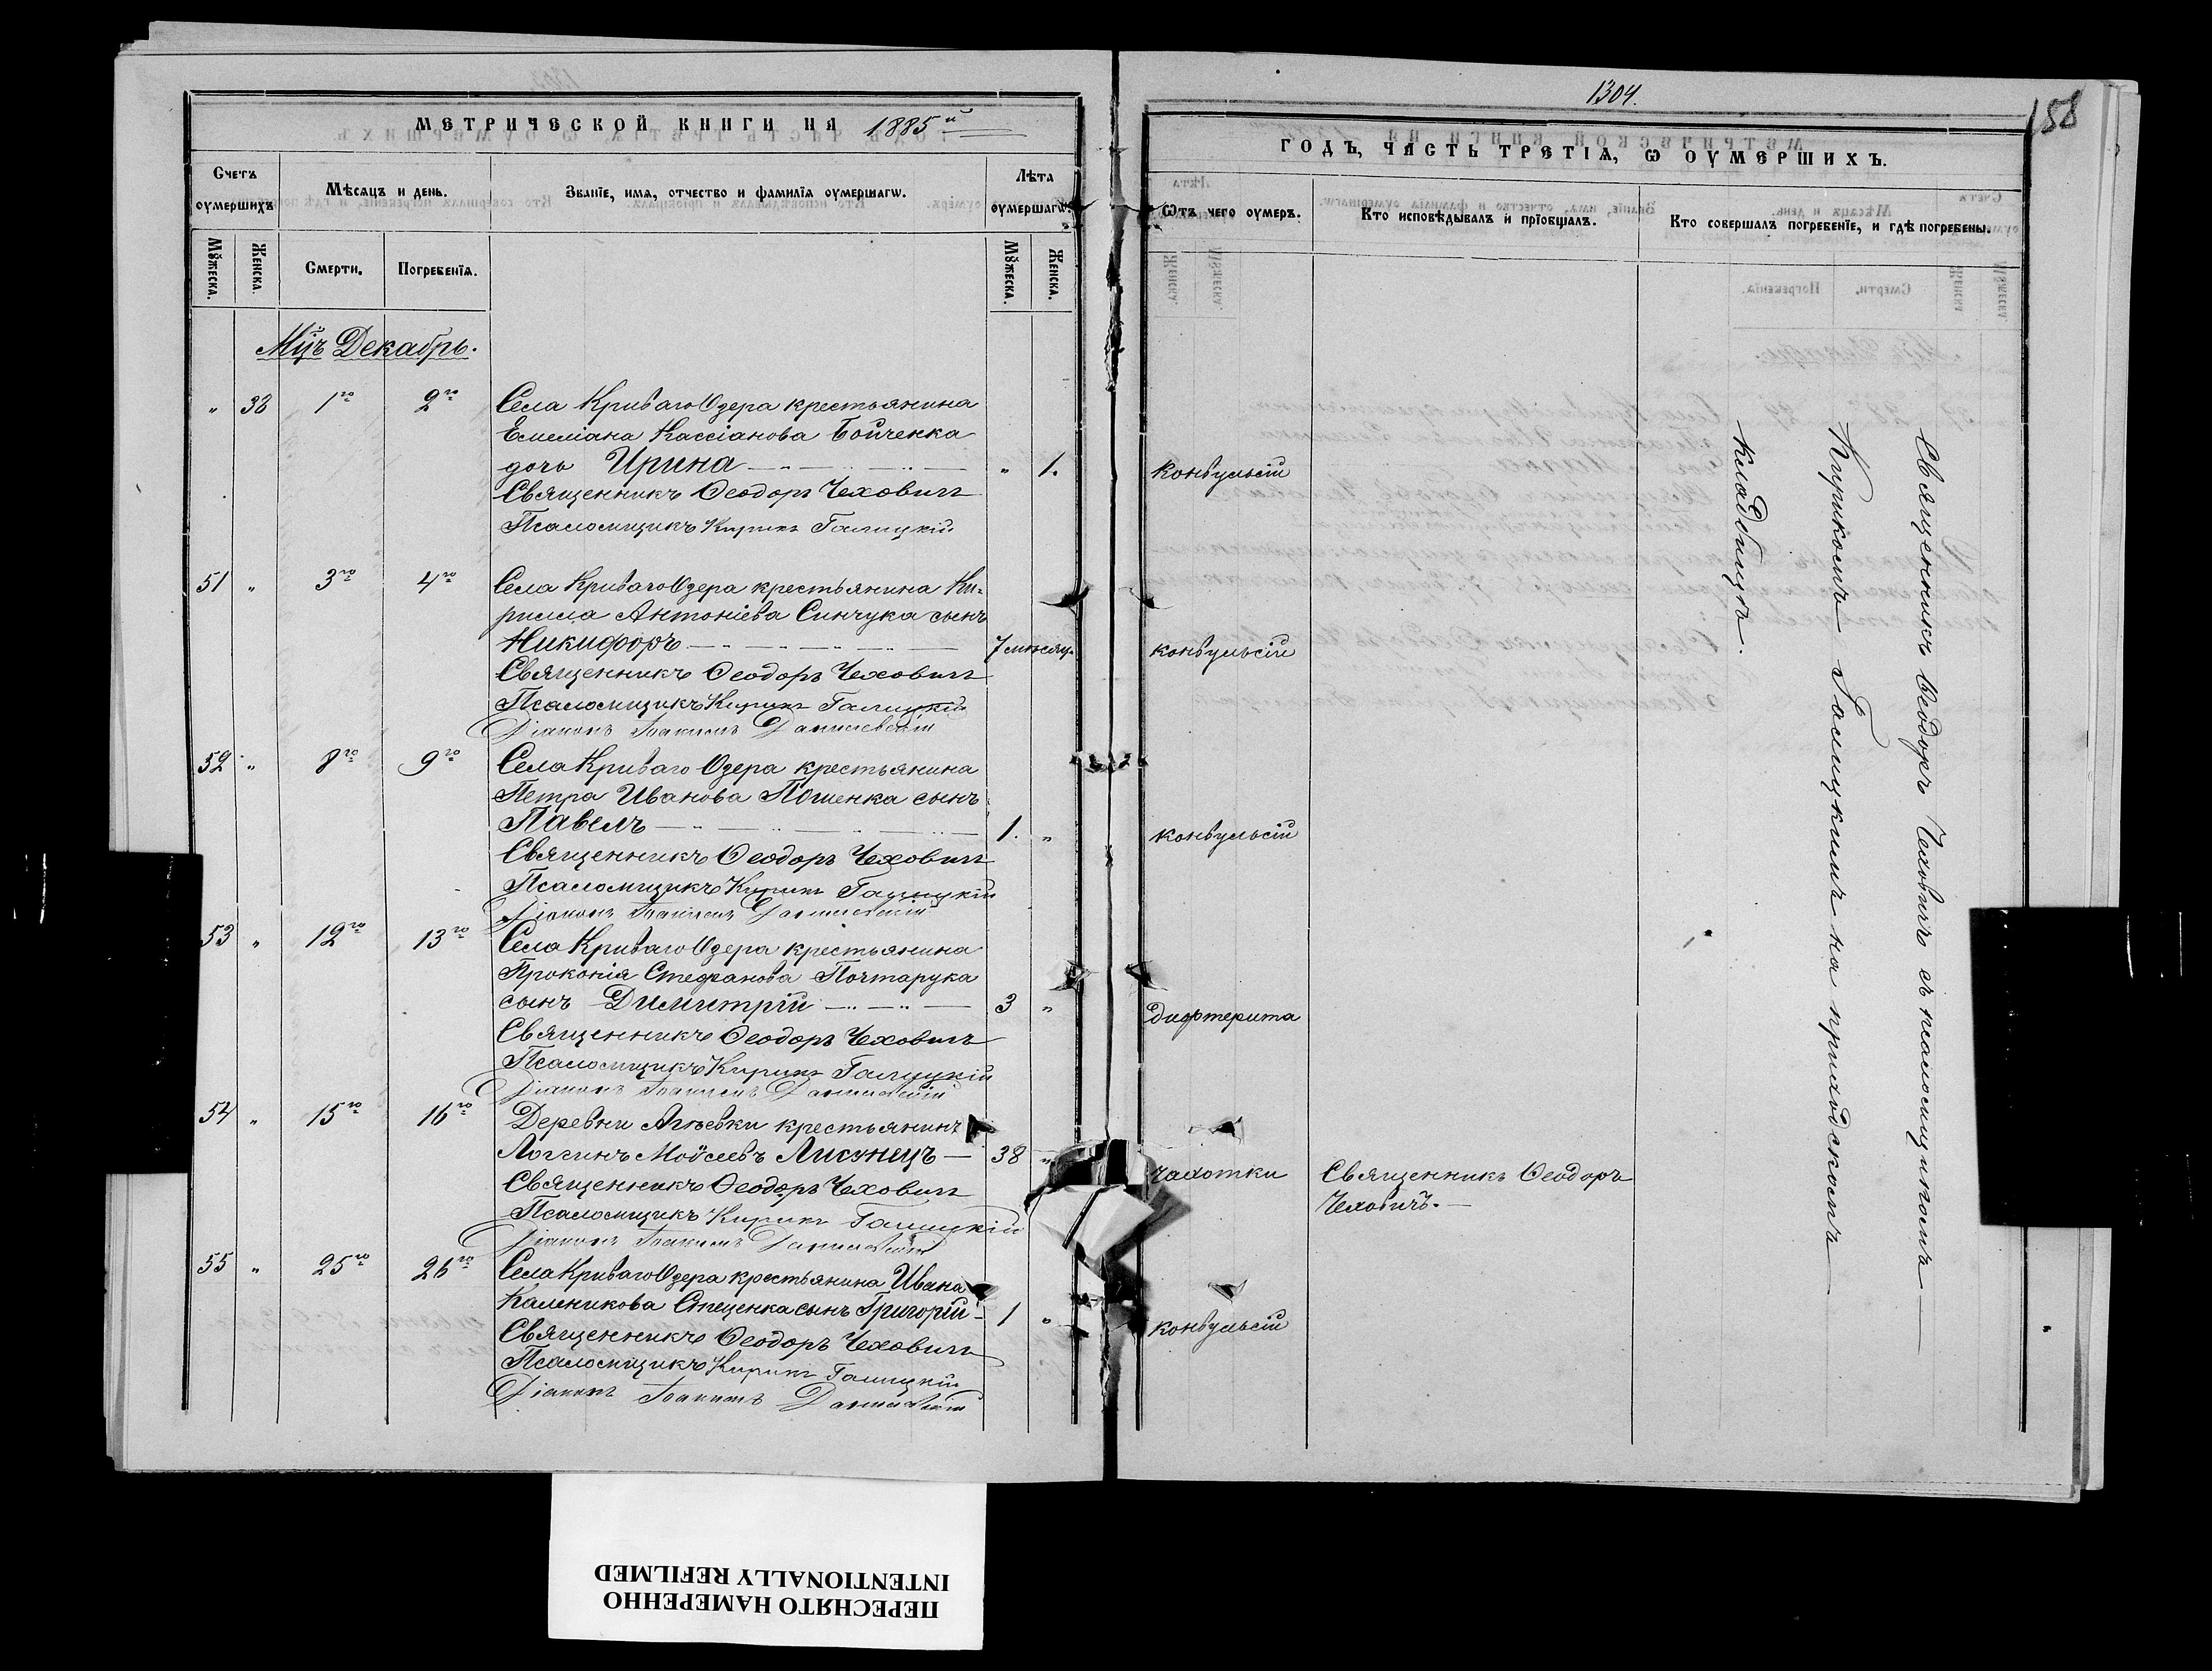 МЕТРИЧЕСКОЙ КНИГИ НА 1885й
Счетъ оумершихъ
Мѣсяцъ и день.
Званіе, имя, отчество и фамилія оумершагѡ.
Лѣта оумершагѡ
Мꙋжеска.
Женска.
Смерти.
Погребенія.
Мужеска.
Женска.
Мцъ Декабрь.
" 38 1го 2го Села Криваго Озера крестьянина
Емеліана Кассіанова Бойченка
дочь Ирина " 1.
Священникъ Ѳеодоръ Чеховичъ
Псаломщикъ Кирикъ Галицкій
51 " 3го 4го Села Криваго Озера крестьянина Ки=
рилла Антоніева Синчука сынъ
Никифоръ 7 мѣсяц.
Священникъ Ѳеодоръ Чеховичъ
Псаломщикъ Кирикъ Галицкій
Діаконъ Іоакимъ Данилевскій
52 " 8го 9го Села Криваго Озера крестьянина
Петра Иванова сынъ
Павелъ 1. "
Священникъ Ѳеодоръ Чеховичъ
Псаломщикъ Кирикъ Галицкій
Діаконъ Іоакимъ Данилевскій
53 " 12го 13го Села Криваго Озера крестьянина
Прокопія Стефанова Почтарука
сынъ Димитрій 3 "
Священникъ Ѳеодоръ Чеховичъ
Псаломщикъ Кирикъ Галицкій
Діаконъ Іоакимъ Данилевскій
54 " 15го 16го Деревни крестьянинъ
Логгинъ Моѵсеевъ Лисунецъ 38 "
Священникъ Ѳеодоръ Чеховичъ
Псаломщикъ Кирикъ Галицкій
Діаконъ Іоакимъ Данилевскій
55 " 25го 26го Села Криваго Озера крестьянина Ивана
Каленикова Стеценка сынъ Григорій 1 "
Священникъ Ѳеодоръ Чеховичъ
Псаломщикъ Кирикъ Галицкій
Діаконъ Іоакимъ Данилевскій
1304.
158
ГОДЪ, ЧАСТЬ ТРЕТІЯ, Ѡ ОУМЕРШИХЪ.
Ѿтъ чего оумеръ.
Кто исповѣдывалъ и пріобщалъ.
Кто совершалъ погребеніе, и гдѣ погребены.
конвульсій
конвульсій
конвульсій
дифтерита
чахотки
Священникъ Ѳеодоръ
Чеховичъ.
конвульсій
Священникъ Ѳеодоръ Чеховичъ съ псаломщикомъ
Кирикомъ Галицкимъ на приходскомъ
кладбищѣ.
ПЕРЕСНЯТО НАМЕРЕННО
INTENTIONALLY REFILMED